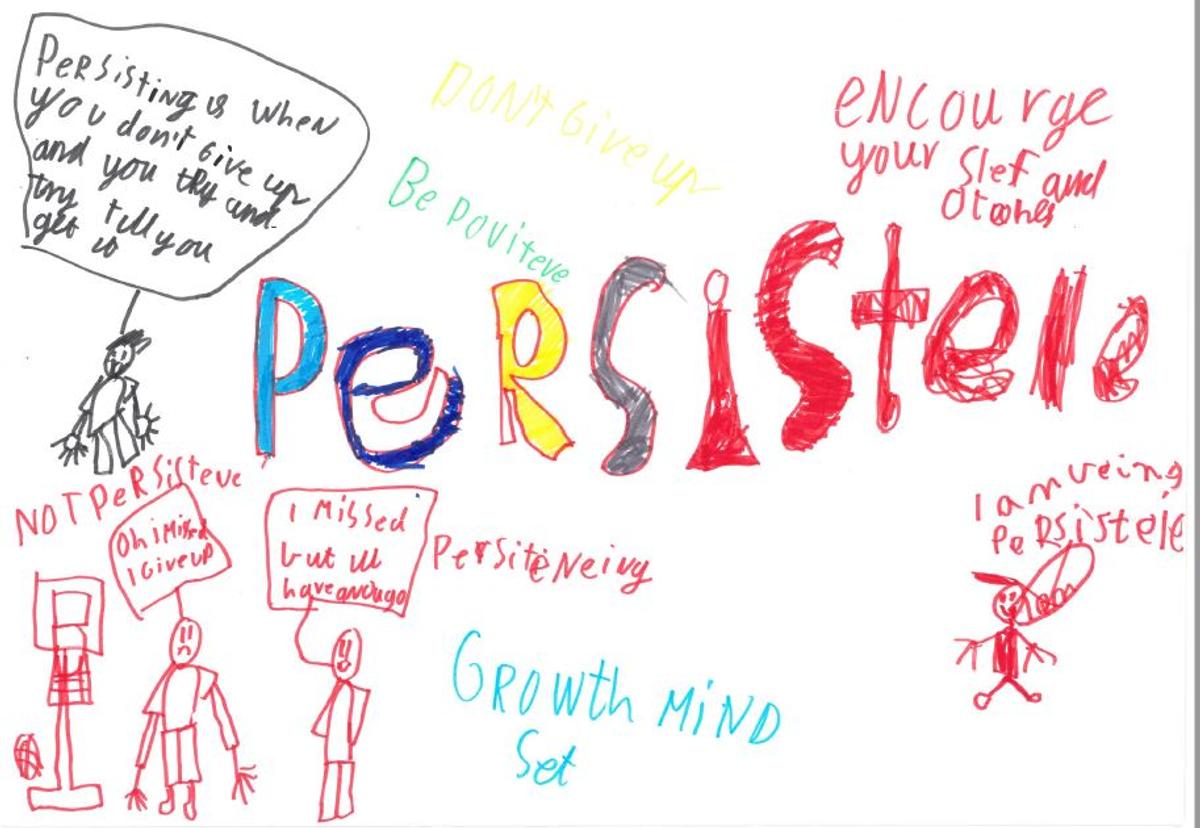 PeRSisting is when
you don't Give up
and you try and
try till you
get it
DON't Give up
Be pouiteve
eNcourge
your slef and
PeRSiStele
NOT PeRSisteve
Oh i Missed
I Give up
I Missed
but ill
have
PersiteNeing
GROWth MiND
Set
I am
PeRSistele